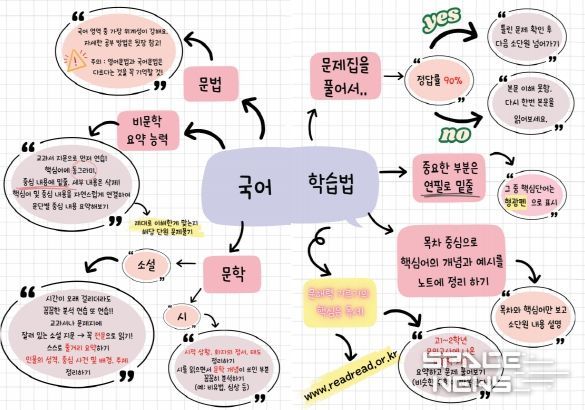 국어 영역 중 가장 위계성이 강해요.
자세한 공부 방법은 뒷장 참고!
주의 : 영어문법과 국어문법은
다르다는 것을 꼭 기억할 것!
문법
비문학
요약 능력
교과서 지문으로 먼저 연습!
핵심어에 동그라미,
중심 내용에 밑줄, 세부 내용은 삭제!
핵심어 및 중심 내용을 자연스럽게 연결하여
문단별 중심 내용 요약해보기
제대로 이해한게 맞는지
해당 단원 문제풀기
국어
학습법
문학
소설
시간이 오래 걸리더라도
꼼꼼한 분석 연습 또 연습!!
교과서나 문제지에
잘려 있는 소설 지문 → 꼭 전문으로 읽기!
스스로 줄거리 요약하기
인물의 성격, 중심 사건 및 배경, 주제
정리하기
시
시적 상황, 화자의 정서, 태도
정리하기
시를 읽으면서 문학 개념이 쓰인 부분
꼼꼼히 분석하기
(예: 비유법, 심상 등)
문제집을
풀어서..
정답률 90%
yes
틀린 문제 확인 후
다음 소단원 넘어가기
no
본문 이해 못함.
다시 한번 본문을
읽어보세요.
중요한 부분은
연필로 밑줄
그 중 핵심단어는
형광펜으로 표시
목차 중심으로
핵심어의 개념과 예시를
노트에 정리 하기
목차와 핵심어만 보고
소단원 내용 설명
문해력 기르기의
핵심은 독서
www.readread.or.kr
고1~2학년
모의고사에 나온
요약하고 문제 풀어보기
SPACE
NEWS